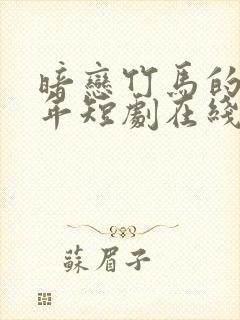 暗戀竹馬的
年短劇在綫
蘇眉子